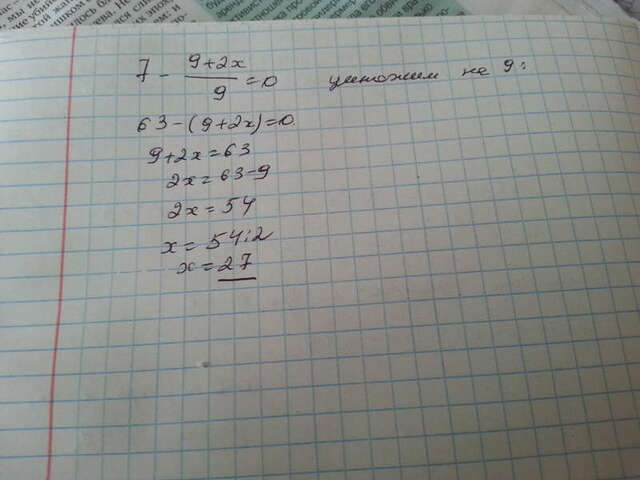 7 - (9+2x)/9 = 0 умножим на 9:
63-(9+2x)=0
9+2x=63
2x=63-9
2x=54
x=54:2
x=27